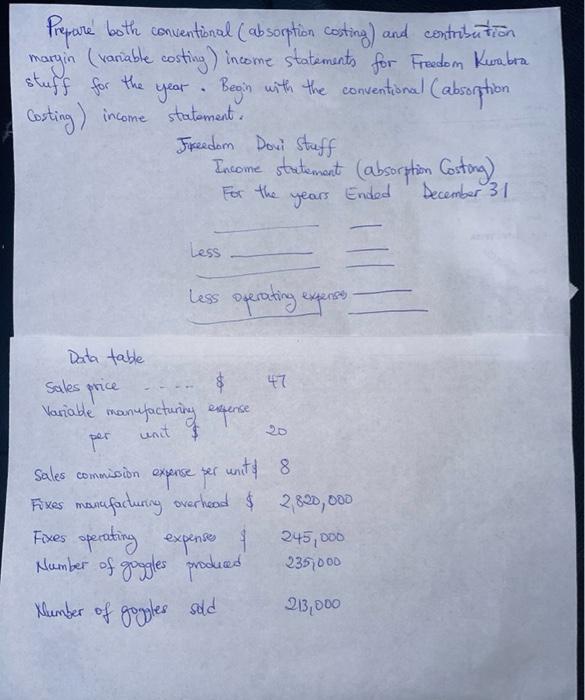 Prepare both conventional (absorption costing) and contribution
margin (variable costing) income statements for Freedom Kwabra
stuff for the year. Begin with the conventional (absorption
Costing) income statement.
Freedom Dovi Stuff
Income statement (absorption Costing)
For the years Ended December 31
Less
Less operating expenses
Data table
Sales price ----- $ 47
Variable manufacturing expense
per unit $ 20
Sales commission expense per unit $ 8
Fixes manufacturing overhead $ 2,820,000
Fixes operating expenses $ 245,000
Number of goggles produced 235,000
Number of goggles sold 213,000